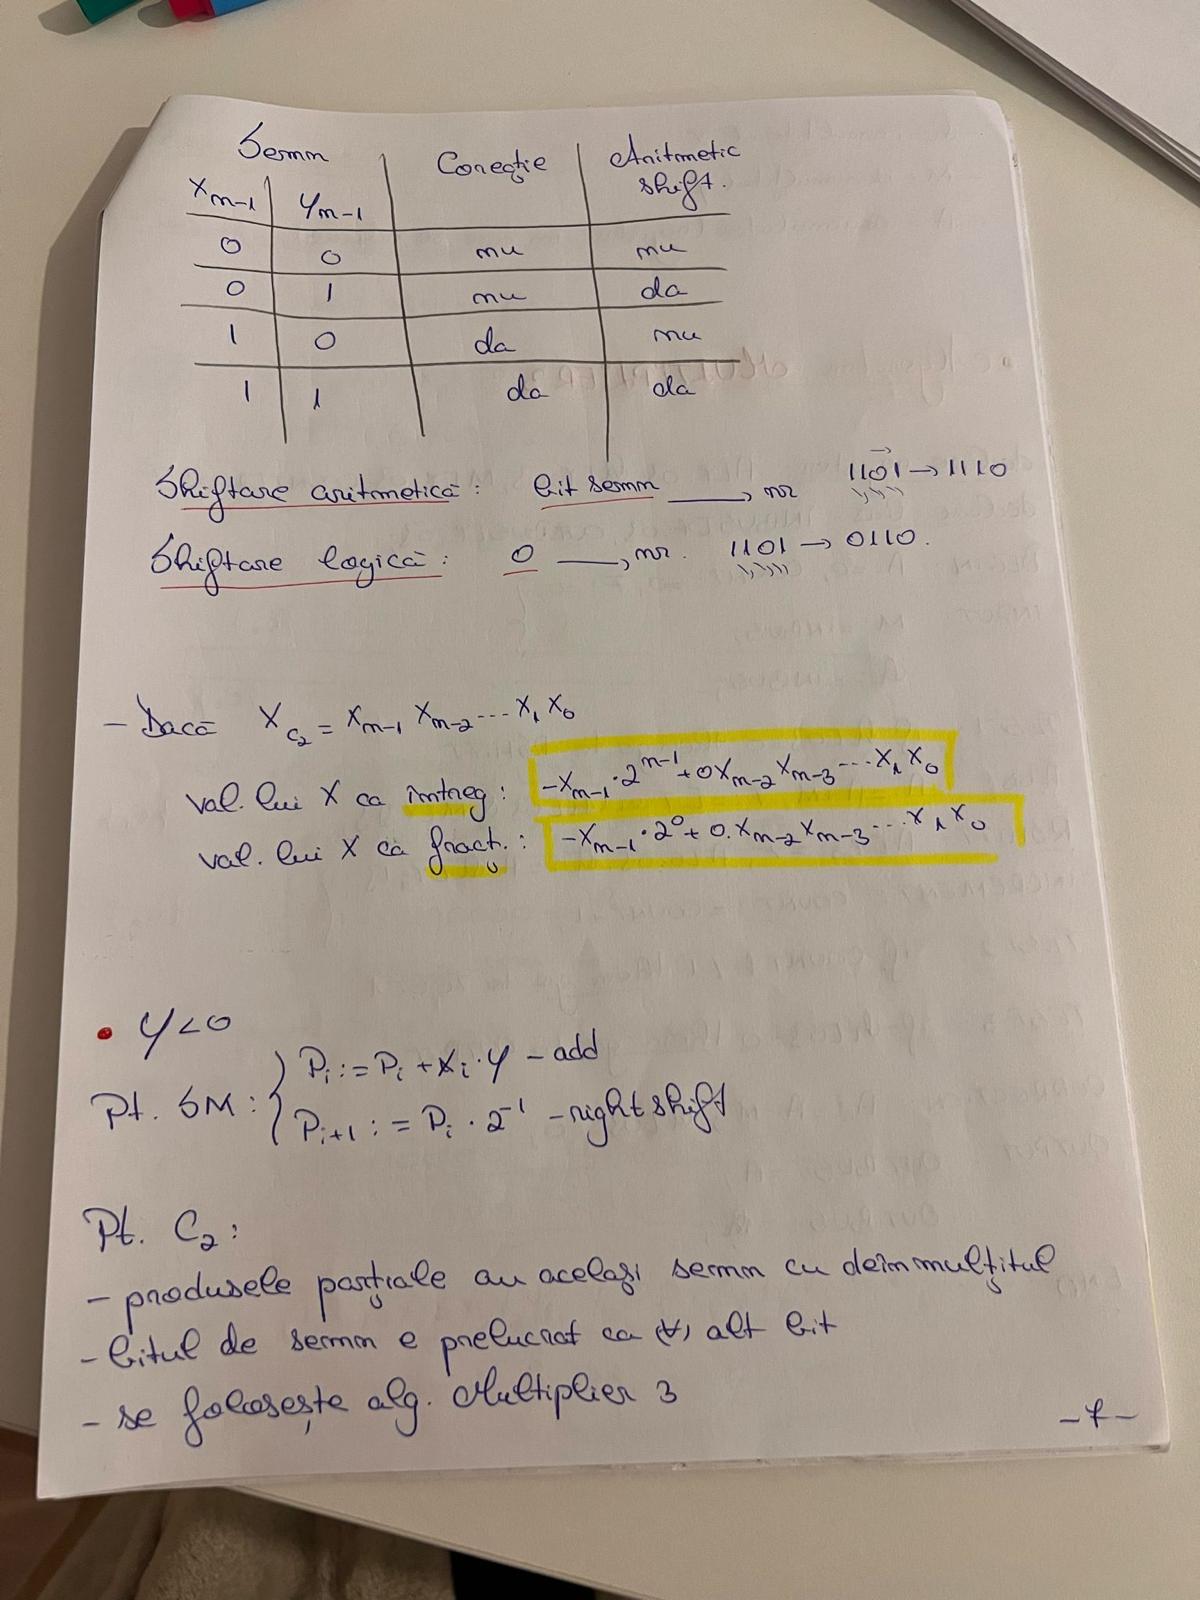 Semn | Corecție | Aritmetic shift.
Xn-1 | Yn-1
0 | 0 | nu | nu
0 | 1 | nu | da
1 | 0 | da | nu
1 | 1 | da | da
Shiftare aritmetică: bit semn → nr 1101 → 1110
Shiftare logică: 0 → nr. 1101 → 0110.
- Dacă X_C2 = Xn-1 Xn-2 ... X1 X0
val. lui X ca întreg: -Xn-1 · 2^n-1 + 0Xn-2 Xn-3 ... X1 X0
val. lui X ca fracț.: -Xn-1 · 2^0 + 0.Xn-2 Xn-3 ... X1 X0
• Y<0
Pt. SM: { Pi := Pi + Xi · Y - add
Pi+1 := Pi · 2^-1 - right shift
Pt. C2:
- produsele parțiale au același semn cu deînmulțitul
- bitul de semn e prelucrat ca (∀) alt bit
- se folosește alg. Multiplier 3
-7-